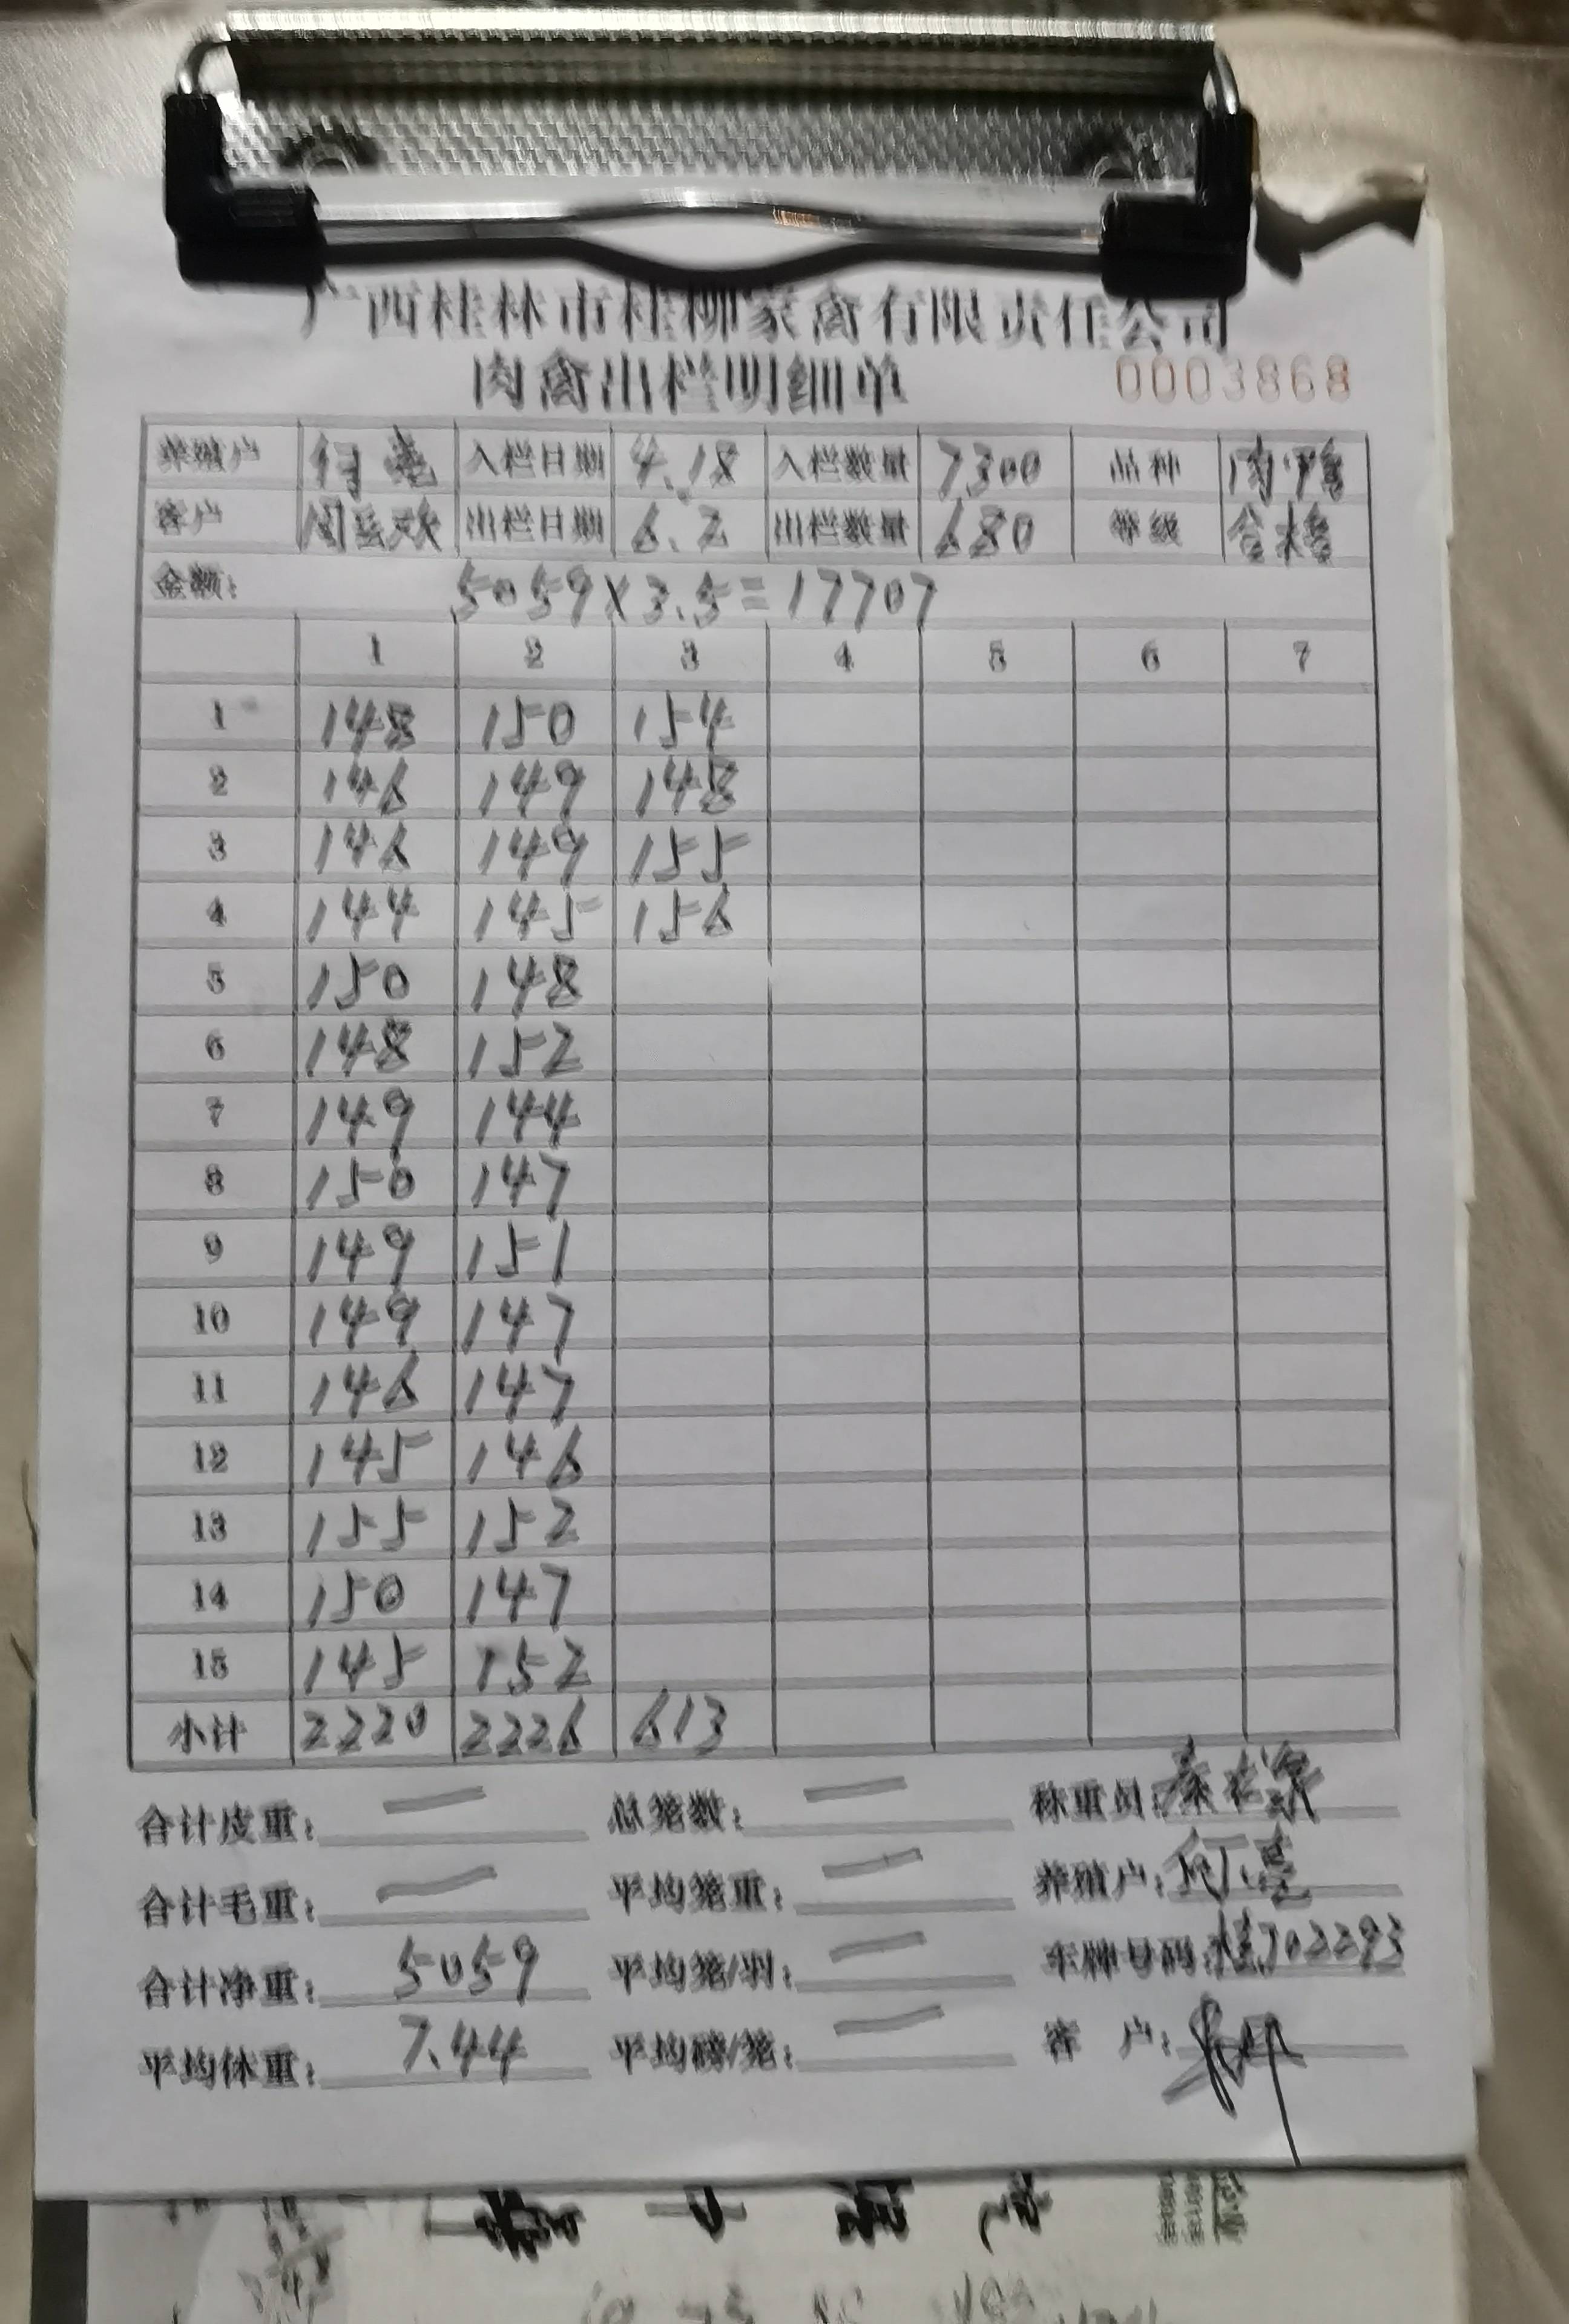 广西桂林市桂柳家禽有限责任公司
肉禽出栏明细单 0003868
养殖户 何亮 入栏日期 4.18 入栏数量 7300 品种 肉鸭
客户 出栏日期 6.2 出栏数量 680 等级 合格
金额: 5059×3.5=17707
1 2 3 4 5 6 7
1 148 150 154
2 146 149 148
3 146 149 155
4 144 145 156
5 150 148
6 148 152
7 149 144
8 150 147
9 149 151
10 149 147
11 146 147
12 145 146
13 155 152
14 150 147
15 145 152
小计 2220 2226 613
合计皮重: — 总笼数: — 称重员:
合计毛重: — 平均笼重: — 养殖户: 何亮
合计净重: 5059 平均笼/羽: — 车牌号码: 桂J02293
平均体重: 7.44 平均磅/笼: — 客 户: